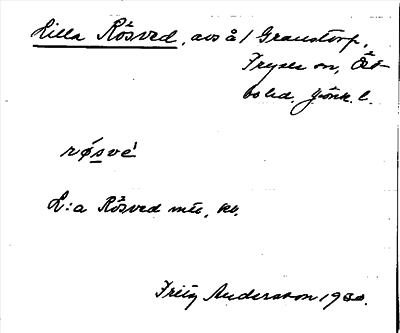 Lilla Rösved, avs å 1 Granstorp,
Fryele sn, Öst-
bo hd. Jönk. l.
røsvé
L:a Rösved mtl, kb.
Fritz Andersson 1930.